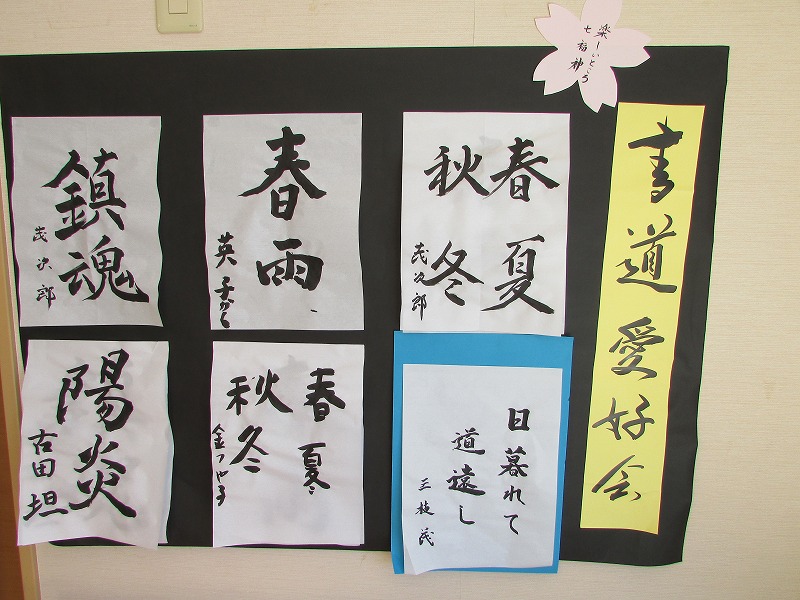 楽しいところ
七福神
書道愛好会
春夏
秋冬
茂次郎
春雨
英子かく
鎮魂
茂次郎
日暮れて
道遠し
三枝茂
春夏
秋冬
陽炎
古田坦